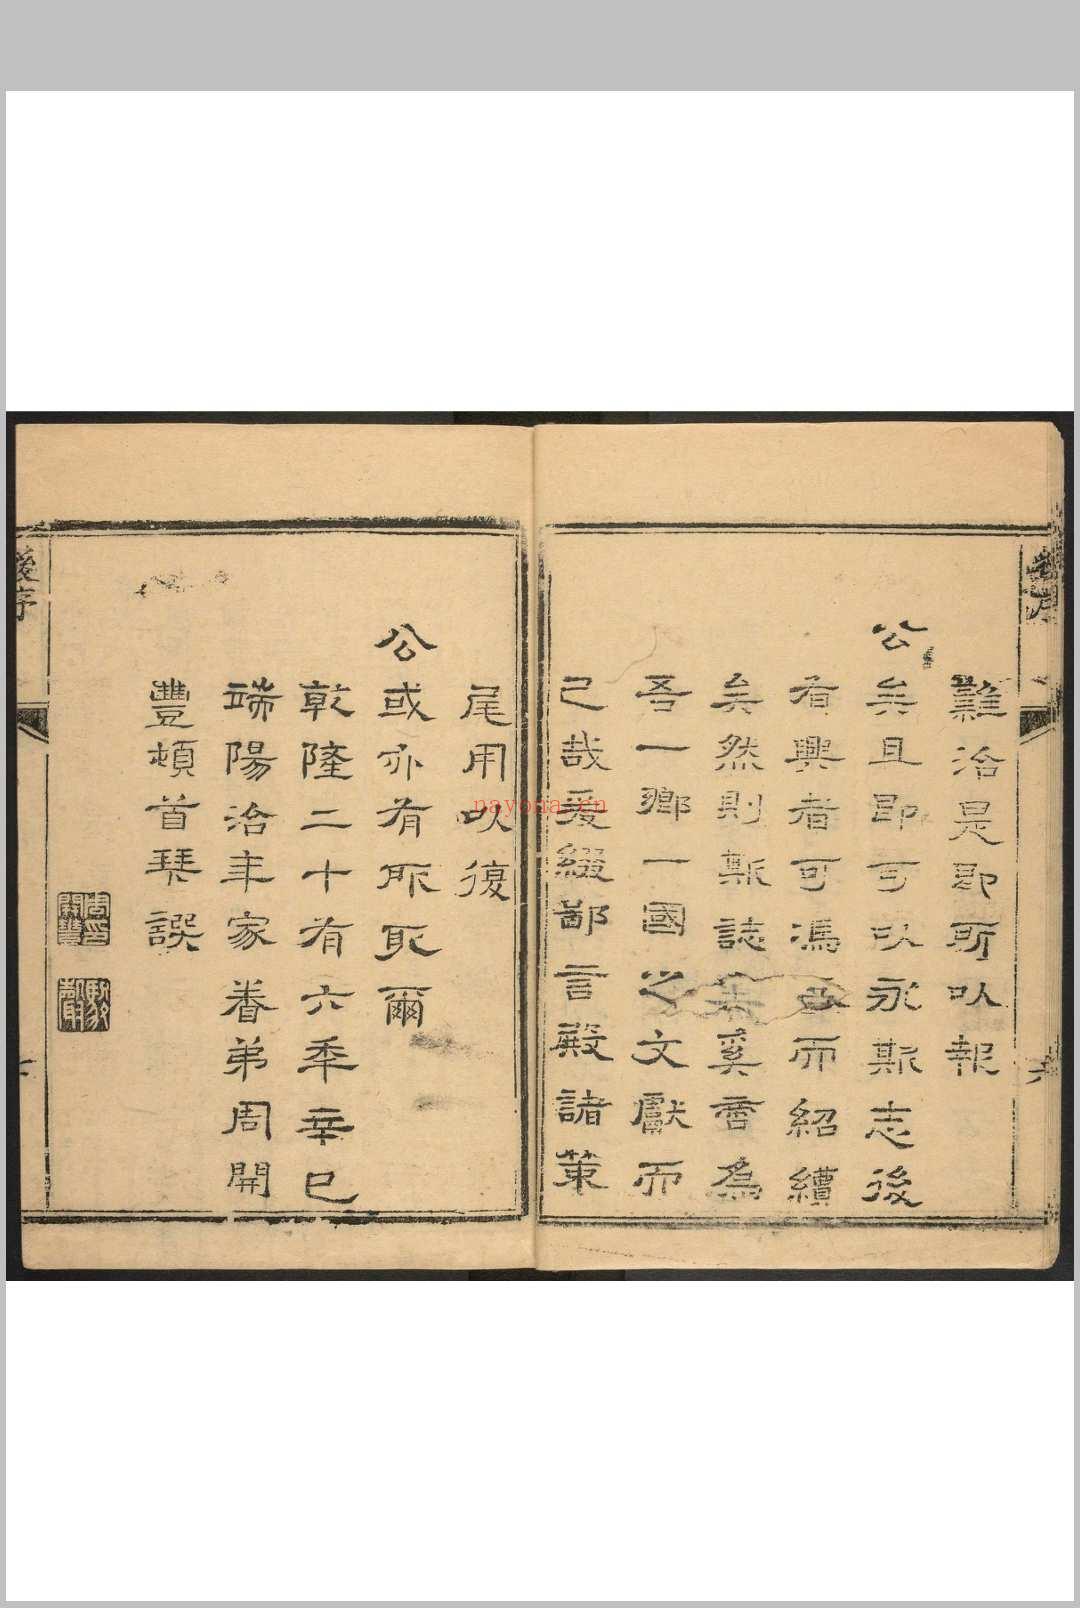 難治是即所以報
公矣且即可以永斯志後
有興者可馮而紹續
矣然則斯誌奚啻為
吾一鄉一國之文獻而
已哉爰綴鄙言殿諸策
尾用以復
公或亦有所取爾
乾隆二十有六季辛巳
端陽治年家眷弟周開
豐頓首拜譔
後序
nayona.cn